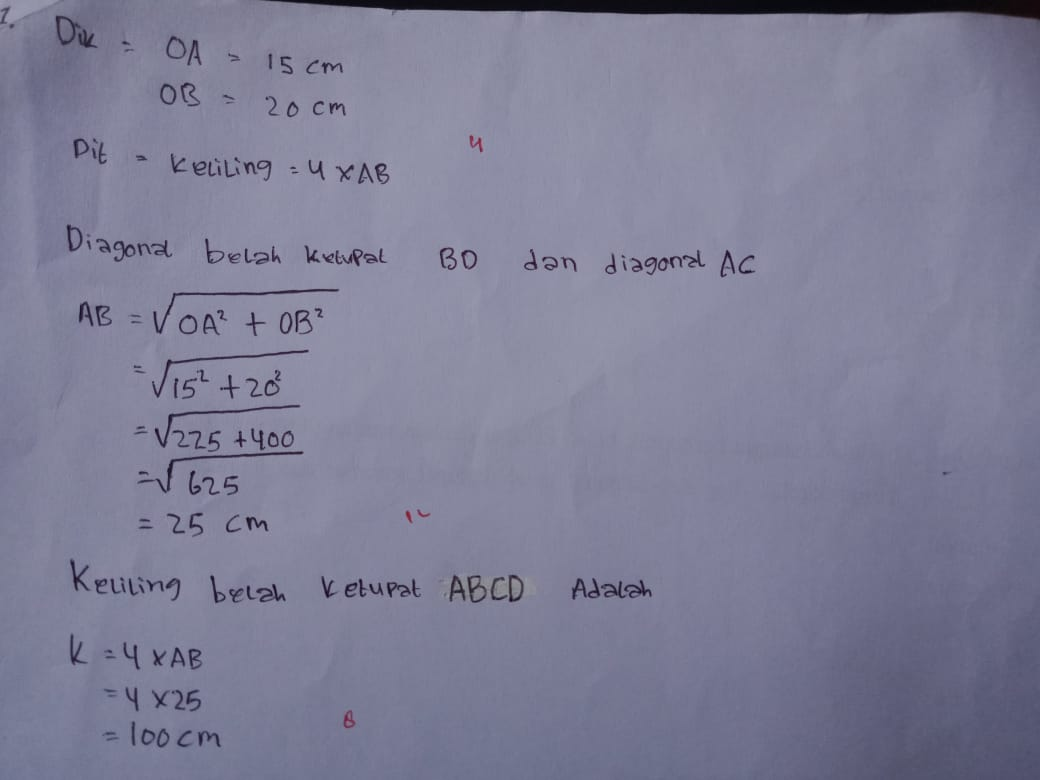 1.
Dik = OA = 15 cm
OB = 20 cm
Dit = Keliling = 4 x AB
4
Diagonal belah ketupat BD dan diagonal AC
AB = √OA² + OB²
= √15² + 20²
= √225 + 400
= √625
= 25 cm
12
Keliling belah ketupat ABCD Adalah
K = 4 x AB
= 4 x 25
= 100 cm
8